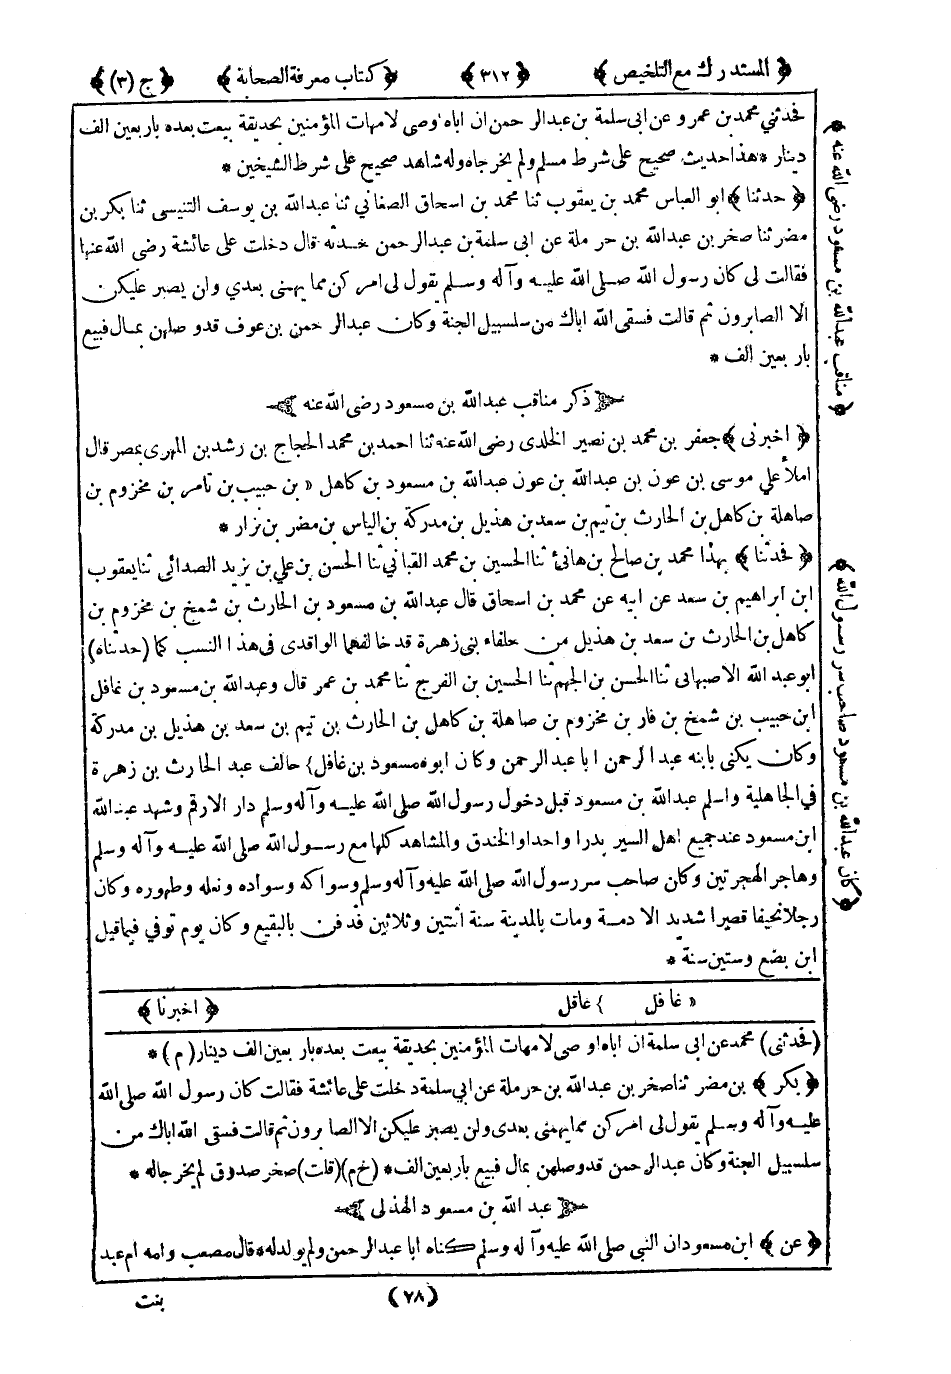 ﴿ المستدرك مع التلخيص ﴾ ﴿ ٣١٢ ﴾ ﴿ كتاب معرفة الصحابة ﴾ ﴿ ج (٣) ﴾
فحدثني محمد بن عمرو عن ابى سلمة بن عبد الرحمن ان اباه اوصى لامهات المؤمنين بحديقة بيعت بعده باربعين الف
دينار * هذا حديث صحيح على شرط مسلم ولم يخرجاه وله شاهد صحيح على شرط الشيخين *
﴿ حدثنا ﴾ ابو العباس محمد بن يعقوب ثنا محمد بن اسحاق الصغاني ثنا عبدالله بن يوسف التنيسى ثنا بكر بن
مضر ثنا صخر بن عبدالله بن حرملة عن ابى سلمة بن عبدالرحمن حدثه قال دخلت على عائشة رضى الله عنها
فقالت لى كان رسول الله صلى الله عليه وآله وسلم يقول لى امركن مما يهمنى بعدي ولن يصبر عليكن
الا الصابرون ثم قالت فسقى الله اباك من سلسبيل الجنة وكان عبدالرحمن بن عوف قد وصلهن بمال فبيع
باربعين الف *
ذكر مناقب عبدالله بن مسعود رضى الله عنه
﴿ اخبرنى ﴾ جعفر بن محمد بن نصير الخلدى رضى الله عنه ثنا احمد بن محمد الحجاج بن رشد بن المهرى بمصر قال
املأ علي موسى بن عون بن عبدالله بن عون عبدالله بن مسعود بن كاهل « بن حبيب بن تامر بن مخزوم بن
صاهلة بن كاهل بن الحارث بن تيم بن سعد بن هذيل بن مدركة بن الياس بن مضر بن نزار *
﴿ فحدثنا ﴾ بهذا محمد بن صالح بن هانئ ثنا الحسين بن محمد القبانى ثنا الحسن بن علي بن يزيد الصدائى ثنا يعقوب
ابن ابراهيم بن سعد عن ابيه عن محمد بن اسحاق قال عبدالله بن مسعود بن الحارث بن شمخ بن مخزوم بن
كاهل بن الحارث بن سعد بن هذيل من حلفاء بنى زهرة قد خالفهما الواقدى فى هذا النسب كما (حدثناه)
ابو عبد الله الاصبهانى ثنا الحسن بن الجهم ثنا الحسين بن الفرج ثنا محمد بن عمر قال وعبدالله بن مسعود بن غافل
ابن حبيب بن شمخ بن فار بن مخزوم بن صاهلة بن كاهل بن الحارث بن تيم بن سعد بن هذيل بن مدركة
وكان يكنى بابنه عبد الرحمن ابا عبد الرحمن وكان ابوه مسعود بن غافل } حالف عبد الحارث بن زهرة
فى الجاهلية واسلم عبدالله بن مسعود قبل دخول رسول الله صلى الله عليه وآله وسلم دار الارقم وشهد عبدالله
ابن مسعود عند جميع اهل السير بدرا واحدا والخندق والمشاهد كلها مع رسول الله صلى الله عليه وآله وسلم
وهاجر الهجرتين وكان صاحب سر رسول الله صلى الله عليه وآله وسلم وسواكه وسواده ونعله وطهوره وكان
رجلا نحيفا قصيرا شديد الادمة ومات بالمدينة سنة اثنتين وثلاثين فدفن بالبقيع وكان يوم توفي فيما قيل
ابن بضع وستين سنة *
« غافل } عاقل ﴿ اخبرنا ﴾
(فحدثنى) محمد عن ابى سلمة ان اباه اوصى لامهات المؤمنين بحديقة بيعت بعده باربعين الف دينار (م) *
﴿ بكر ﴾ بن مضر ثنا صخر بن عبدالله بن حرملة عن ابي سلمة دخلت على عائشة فقالت كان رسول الله صلى الله
عليه وآله وسلم يقول لى امركن مما يهمنى بعدى ولن يصبر عليكن الا الصابرون ثم قالت فسقى الله اباك من
سلسبيل الجنة وكان عبدالرحمن قد وصلهن بمال فبيع باربعين الف * (خ م) (قلت) صخر صدوق لم يخرجاله *
عبد الله بن مسعود الهذلى
﴿ عن ﴾ ابن مسعود ان النبي صلى الله عليه وآله وسلم كناه ابا عبدالرحمن ولم يولد له * قال مصعب وامه ام عبد
(٧٨) بنت
﴿ مناقب عبدالله بن مسعود رضى الله عنه ﴾
﴿ كان عبدالله بن مسعود صاحب سر رسول الله ﴾